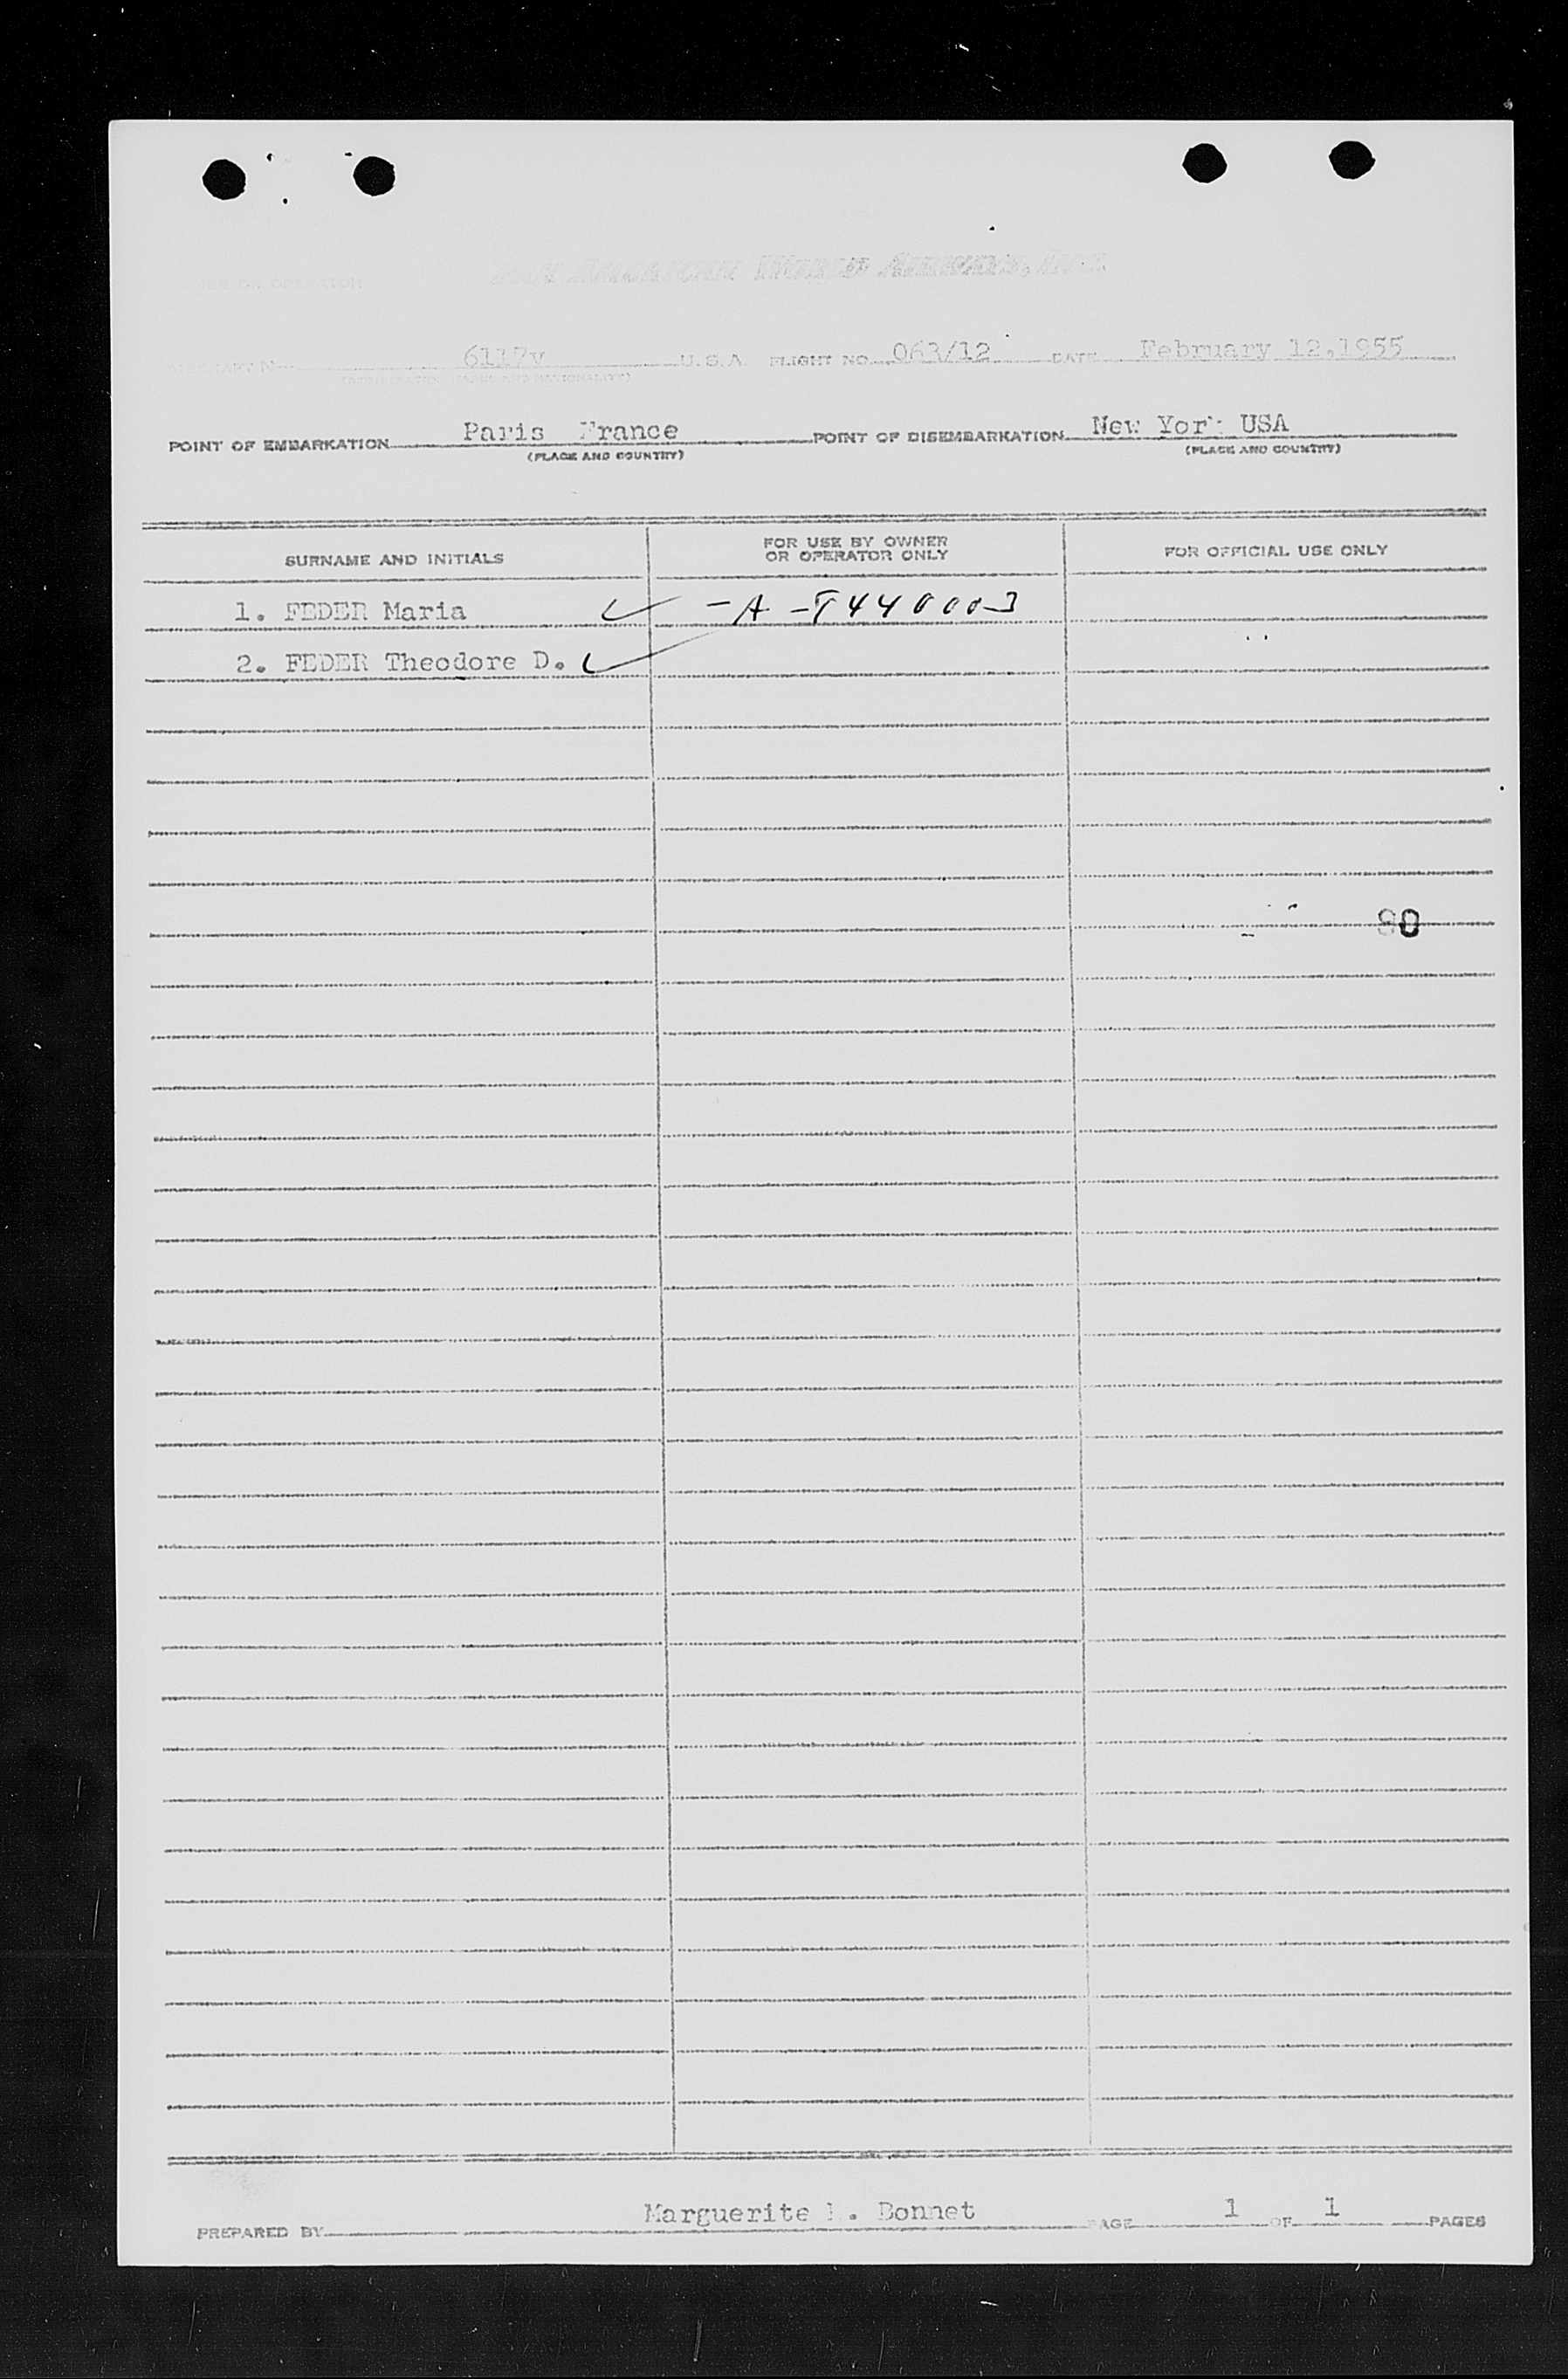 Pan American World Airways, Inc.
6117v U.S.A FLIGHT NO. 063/12 DATE February 12,1955
POINT OF EMBARKATION Paris France POINT OF DISEMBARKATION New York USA
(PLACE AND COUNTRY) (PLACE AND COUNTRY)
SURNAME AND INITIALS FOR USE BY OWNER OR OPERATOR ONLY FOR OFFICIAL USE ONLY
1. FEDER Maria -A-T440003
2. FEDER Theodore D.
Marguerite Bonnet
PREPARED BY PAGE 1 OF 1 PAGES